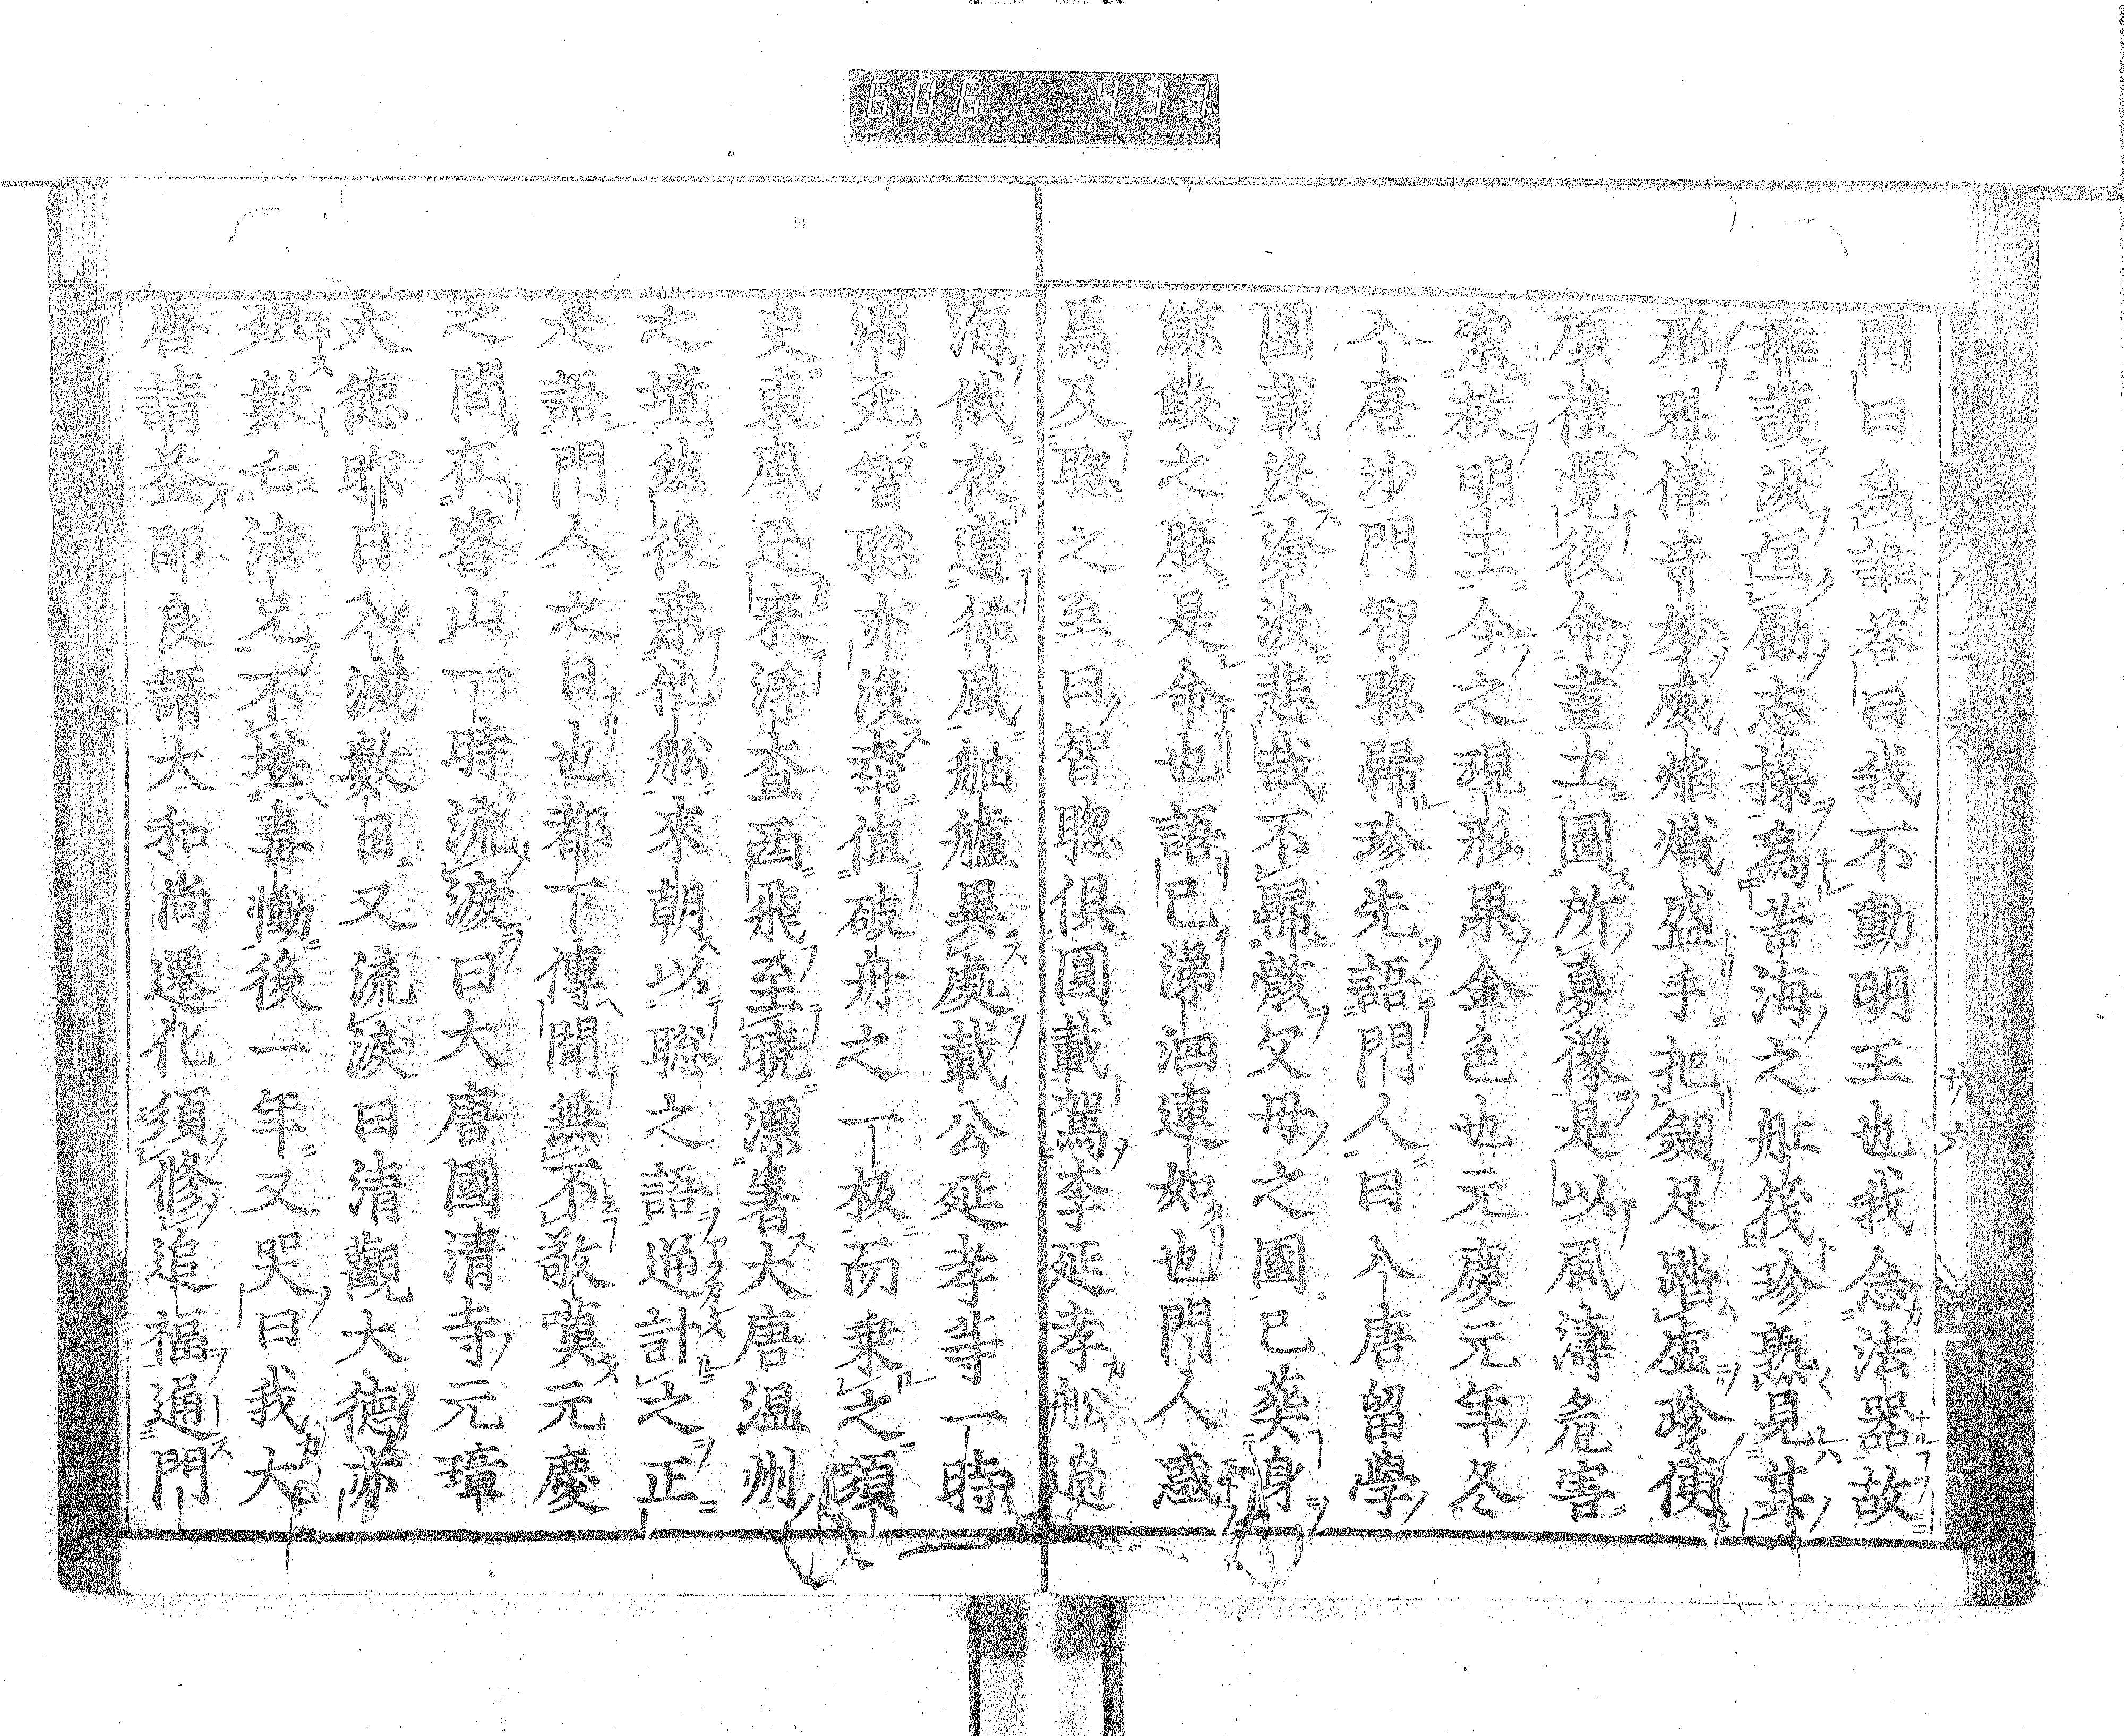 606 433
問曰爲誰荅曰我不動明王也我念法器故
擁護汝宜勵志操爲苦海之舡筏珍熟見其
形魁偉奇妙威焔熾盛手把劔足踏虛珍使
頂禮覺後命畫土圖所夢像是以風濤危害
索救明王今之現形果金色也元慶元年冬
入唐沙門智聰歸珍先語門人曰入唐留學
圓載没滄波悲哉不歸骸父母之國已葬身
鯨鮫之腹是命也語已涕泗連如也門人惑
焉及聰之至曰智聰俱圓載駕李延孝舩過
海俄夜遭猛風舳艫異處載公延孝等一時
溺死智聰亦没 值破舟之一板而乗之須
吏東風迅来浮査西飛至曉漂著大唐温州
之境然後乗他舩來朝以聡之語逆計之正
是語門人之日也都下傳聞無不敬嘆元慶
之間在睿山一時流淚曰大唐國清寺元璋
大德昨日入滅數日又流淚曰清觀大德亦
殂數亡法兄不堪毒慟後一年又哭曰我大
唐請益師良諝大和尚遷化須修追福通門